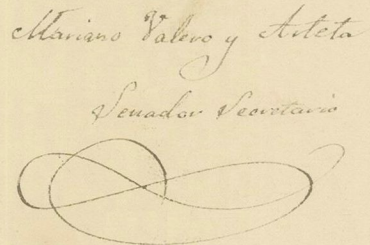 Mariano Valero y Arteta
Senador Secretario